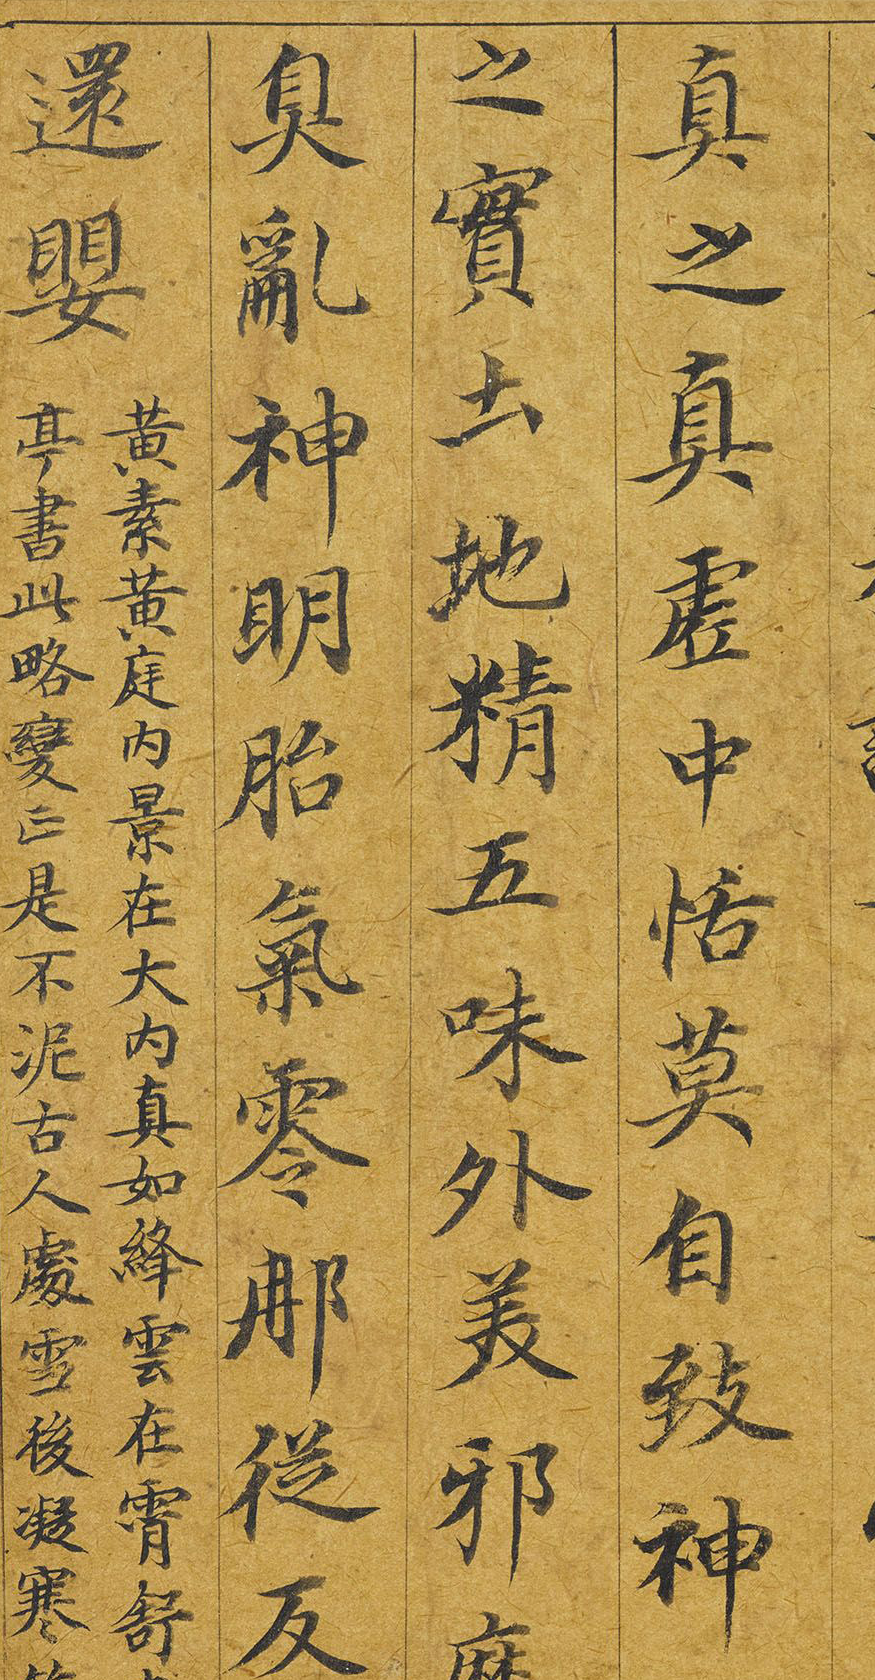 真之真虛中恬莫自致神
之實土地精五味外美邪
臭亂神明胎氣零那從反
還嬰
黄素黄庭内景在大内真如絳雲在霄舒
亭書此略變正是不泥古人處雪後凝寒